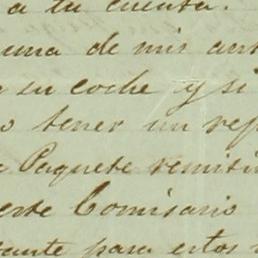 a tu cuenta.
una de mis ant
en coche y si
o tener un rep
Paquete remitir
este Comisario
tante para estos